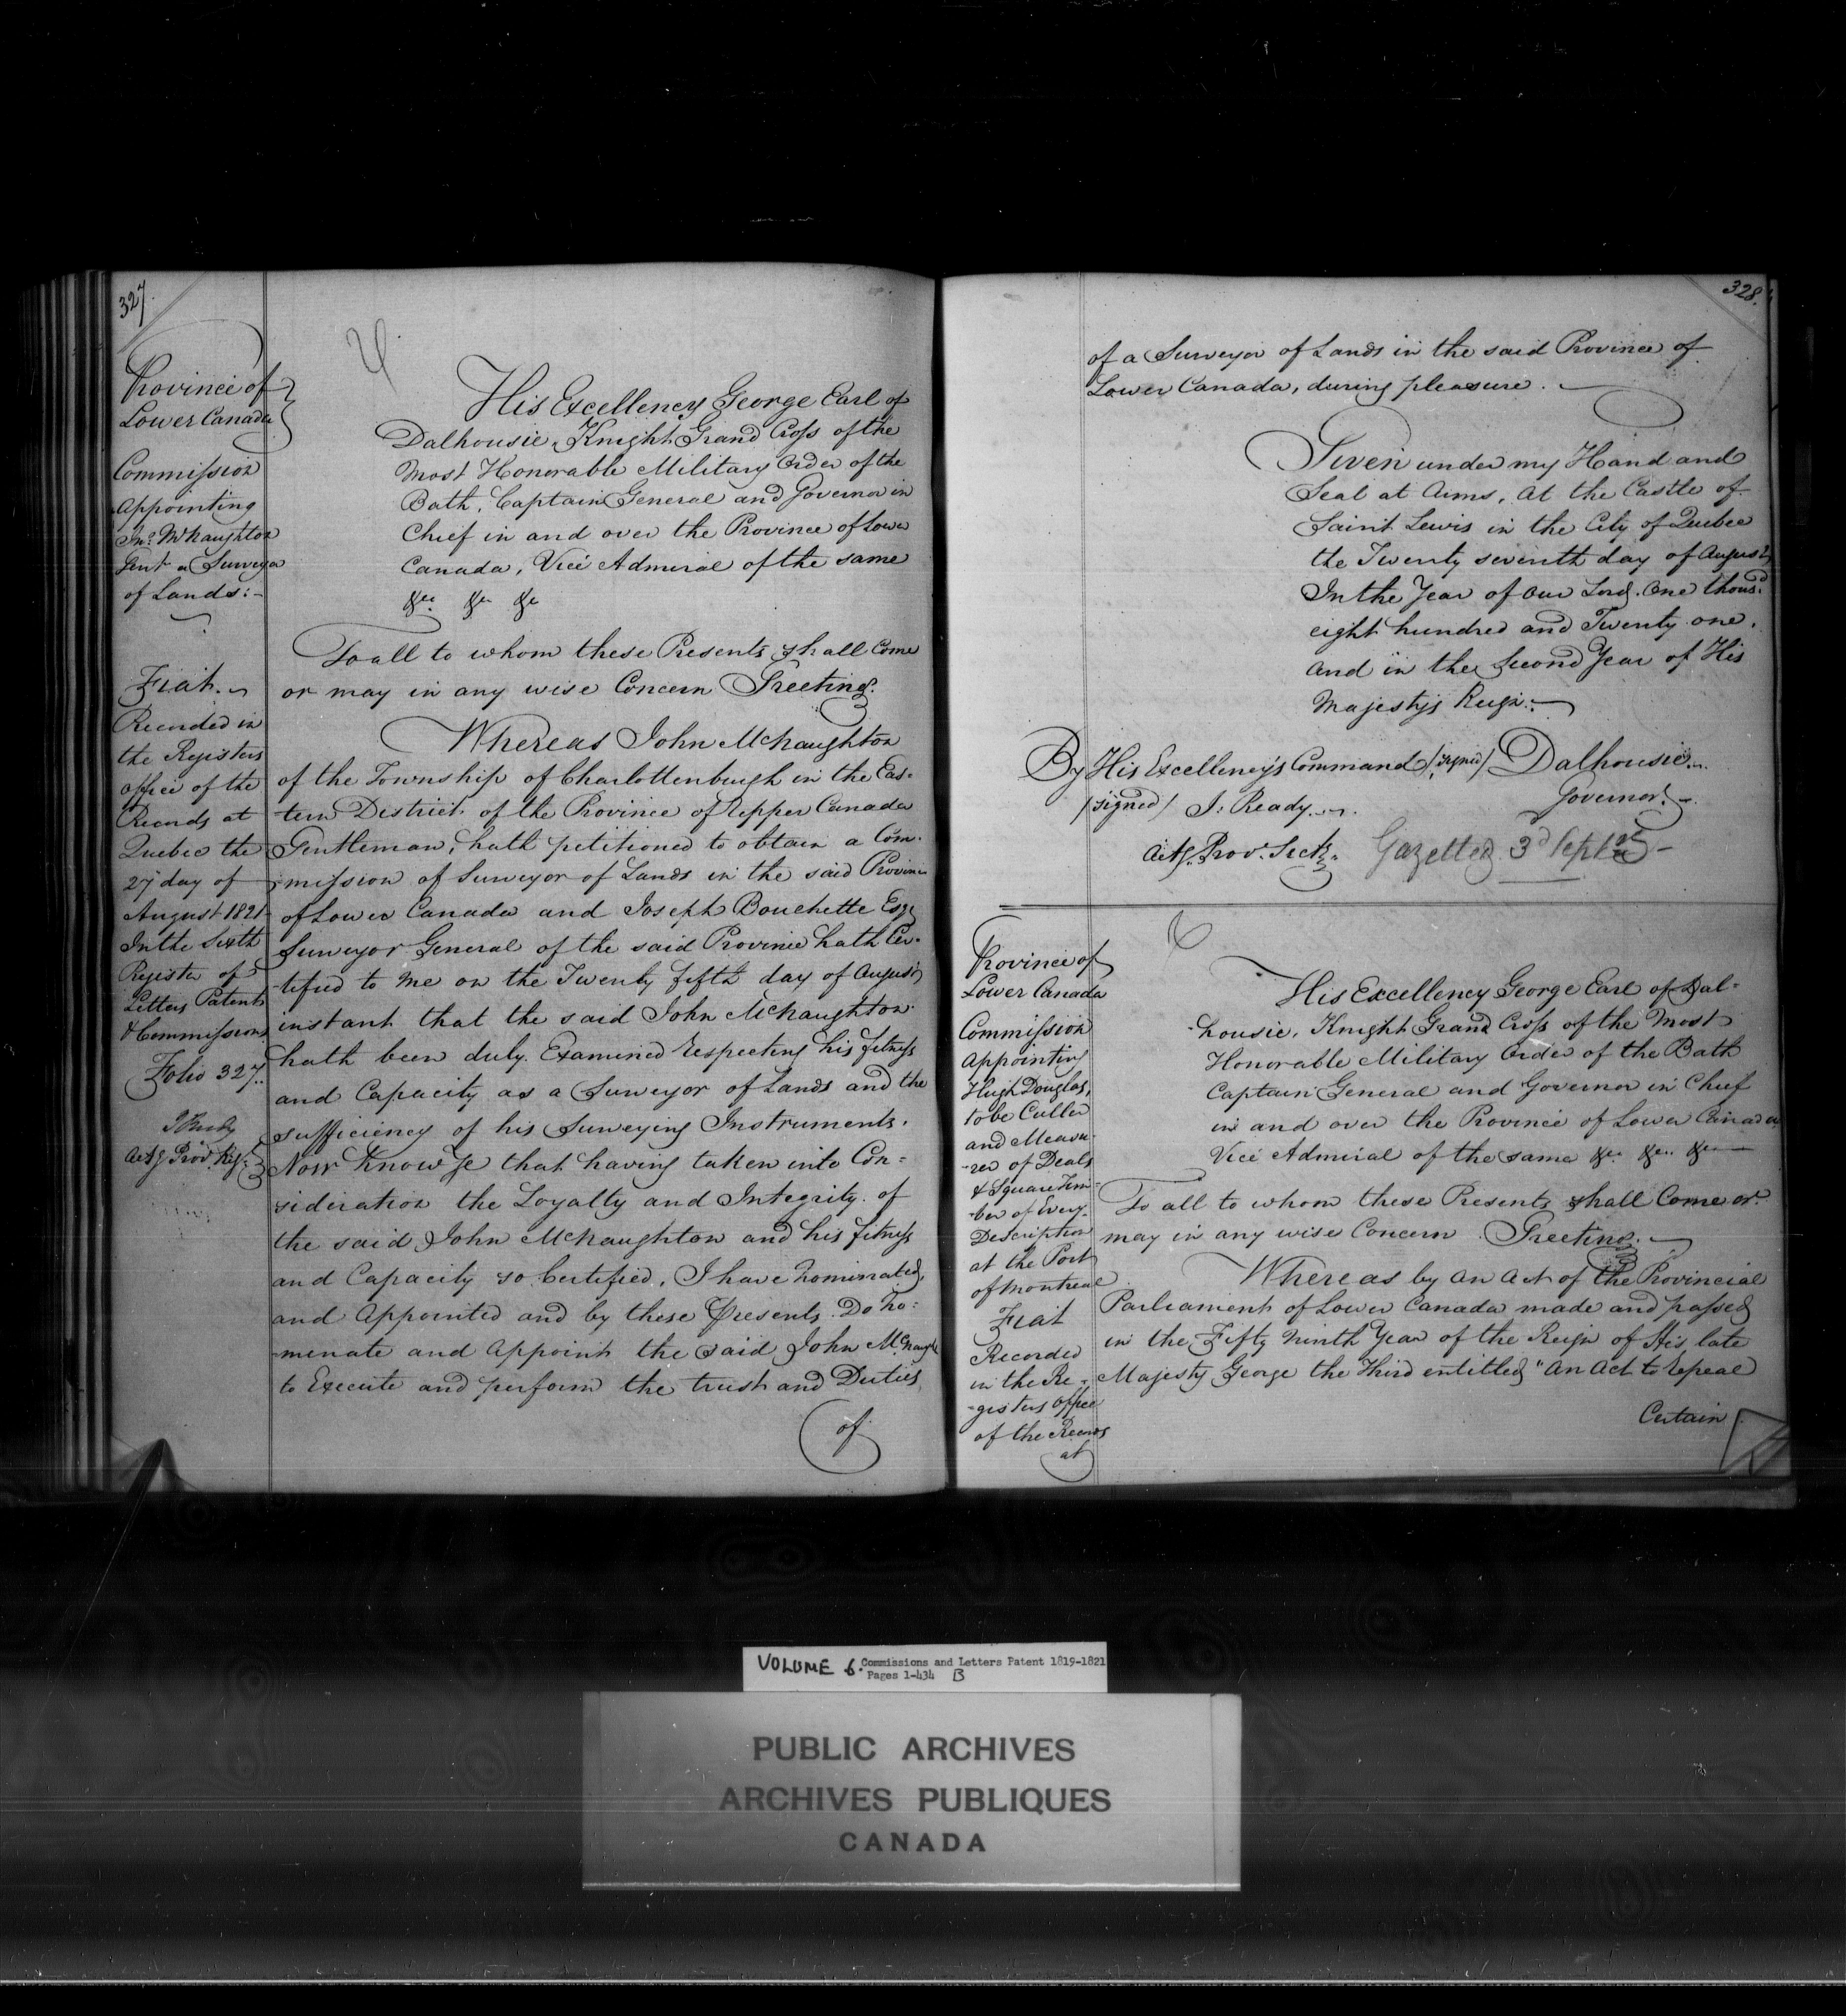 327.
Province of
Lower Canada
Commission
Appointing
Jno. McNaughton
Gent a Surveyor
of Lands:-
Fiat.
Recorded in
the Registers
office of the
Records at
Quebec the
27 day of
August 1821
In the Sixth
Register of
Letters Patents
& Commissions
Folio 327.
Actg Prov. Reg.
His Excellency George Earl of
Dalhousie, Knight Grand Cross of the
Most Honorable Military Order of the
Bath, Captain General and Governor in
Chief in and over the Province of Lower
Canada, Vice Admiral of the same
&c. &c &c
To all to whom these Presents shall Come
or may in any wise Concern Greeting.
Whereas John McNaughton
of the Township of Charlottenburgh in the Eas-
tern District of the Province of Upper Canada
Gentleman, hath petitioned to obtain a Com-
mission of Surveyor of Lands in the said Province
of Lower Canada and Joseph Bouchette Esqr
Surveyor General of the said Province hath Cer-
tified to me on the Twenty fifth day of August
instant that the said John McNaughton
hath been duly Examined respecting his fitness
and Capacity as a Surveyor of Lands and the
sufficiency of his Surveying Instruments.
Now Know Ye that having taken into Con=
sideration the Loyalty and Integrity of
the said John McNaughton and his fitness
and Capacity so Certified, I have Nominated,
and Appointed and by these Presents Do No=
minate and Appoint the said John McNaught
to Execute and perform the trust and Duties
of
328.
of a Surveyor of Lands in the said Province of
Lower Canada, during pleasure.
Given under my Hand and
Seal at Arms, at the Castle of
Saint Lewis in the City of Quebec
the Twenty seventh day of August
In the Year of our Lord One thousd
eight hundred and Twenty one.
and in the Second Year of His
Majesty's Reign.
By His Excellency's Command /signed/ Dalhousie
/signed/ J: Ready. Governor.
Actg. Prov. Secty. Gazetted 3d Sept
Province of
Lower Canada
Commission
Appointing
Hugh Douglas,
to be Culler
and Measu-
-rer of Deals
& Square Tim-
-ber of Every
Description
at the Port
of Montreal
Fiat
Recorded
in the Re-
-gisters office
of the Records
at
His Excellency George Earl of Dal=
housie, Knight Grand Cross of the Most
Honorable Military Order of the Bath
Captain General and Governor in Chief
in and over the Province of Lower Canada
Vice Admiral of the same &c. &c. &c
To all to whom these Presents shall Come or
may in any wise Concern Greeting.
Whereas by an Act of the Provincial
Parliament of Lower Canada made and passed
in the Fifty Ninth Year of the Reign of His late
Majesty George the Third entitled "An Act to Repeal
Certain
VOLUME 6. Commissions and Letters Patent 1819-1821
Pages 1-434 B
PUBLIC ARCHIVES
ARCHIVES PUBLIQUES
CANADA